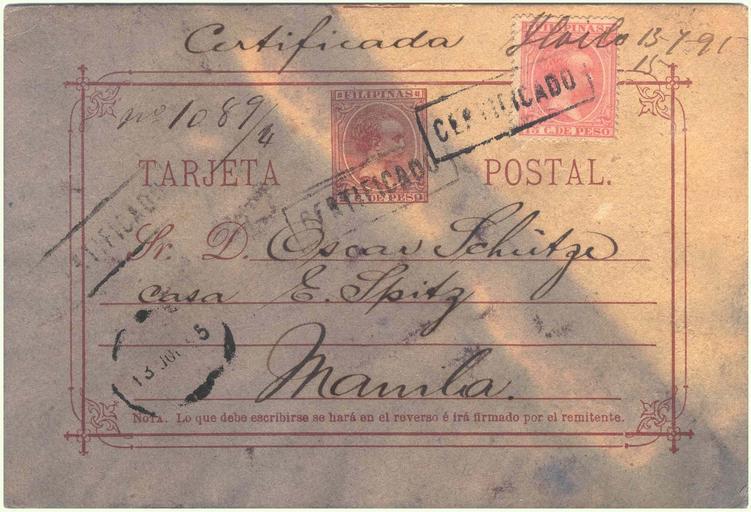 Certificada Iloilo 13-7-95
15
FILIPINAS
FILIPINAS
CERTIFICADO
15 C. DE PESO
nº 1089/4
TARJETA POSTAL.
CERTIFICADO
C. DE PESO
CERTIFICADO
Sr. D. Oscar Schütze
casa E. Spitz
13 JUL 95
Manila.
NOTA. Lo que debe escribirse se hará en el reverso é irá firmado por el remitente.